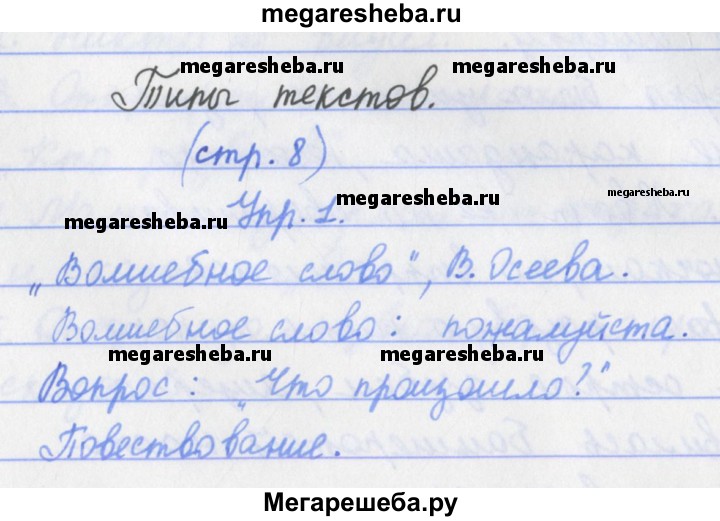 megaresheba.ru
megaresheba.ru megaresheba.ru
Типы текстов.
(стр. 8)
megaresheba.ru megaresheba.ru
megaresheba.ru Упр. 1.
„Волшебное слово", В. Осеева.
Волшебное слово: пожалуйста.
megaresheba.ru megaresheba.ru
Вопрос: „Что произошло?"
Повествование.
Мегарешеба.ру